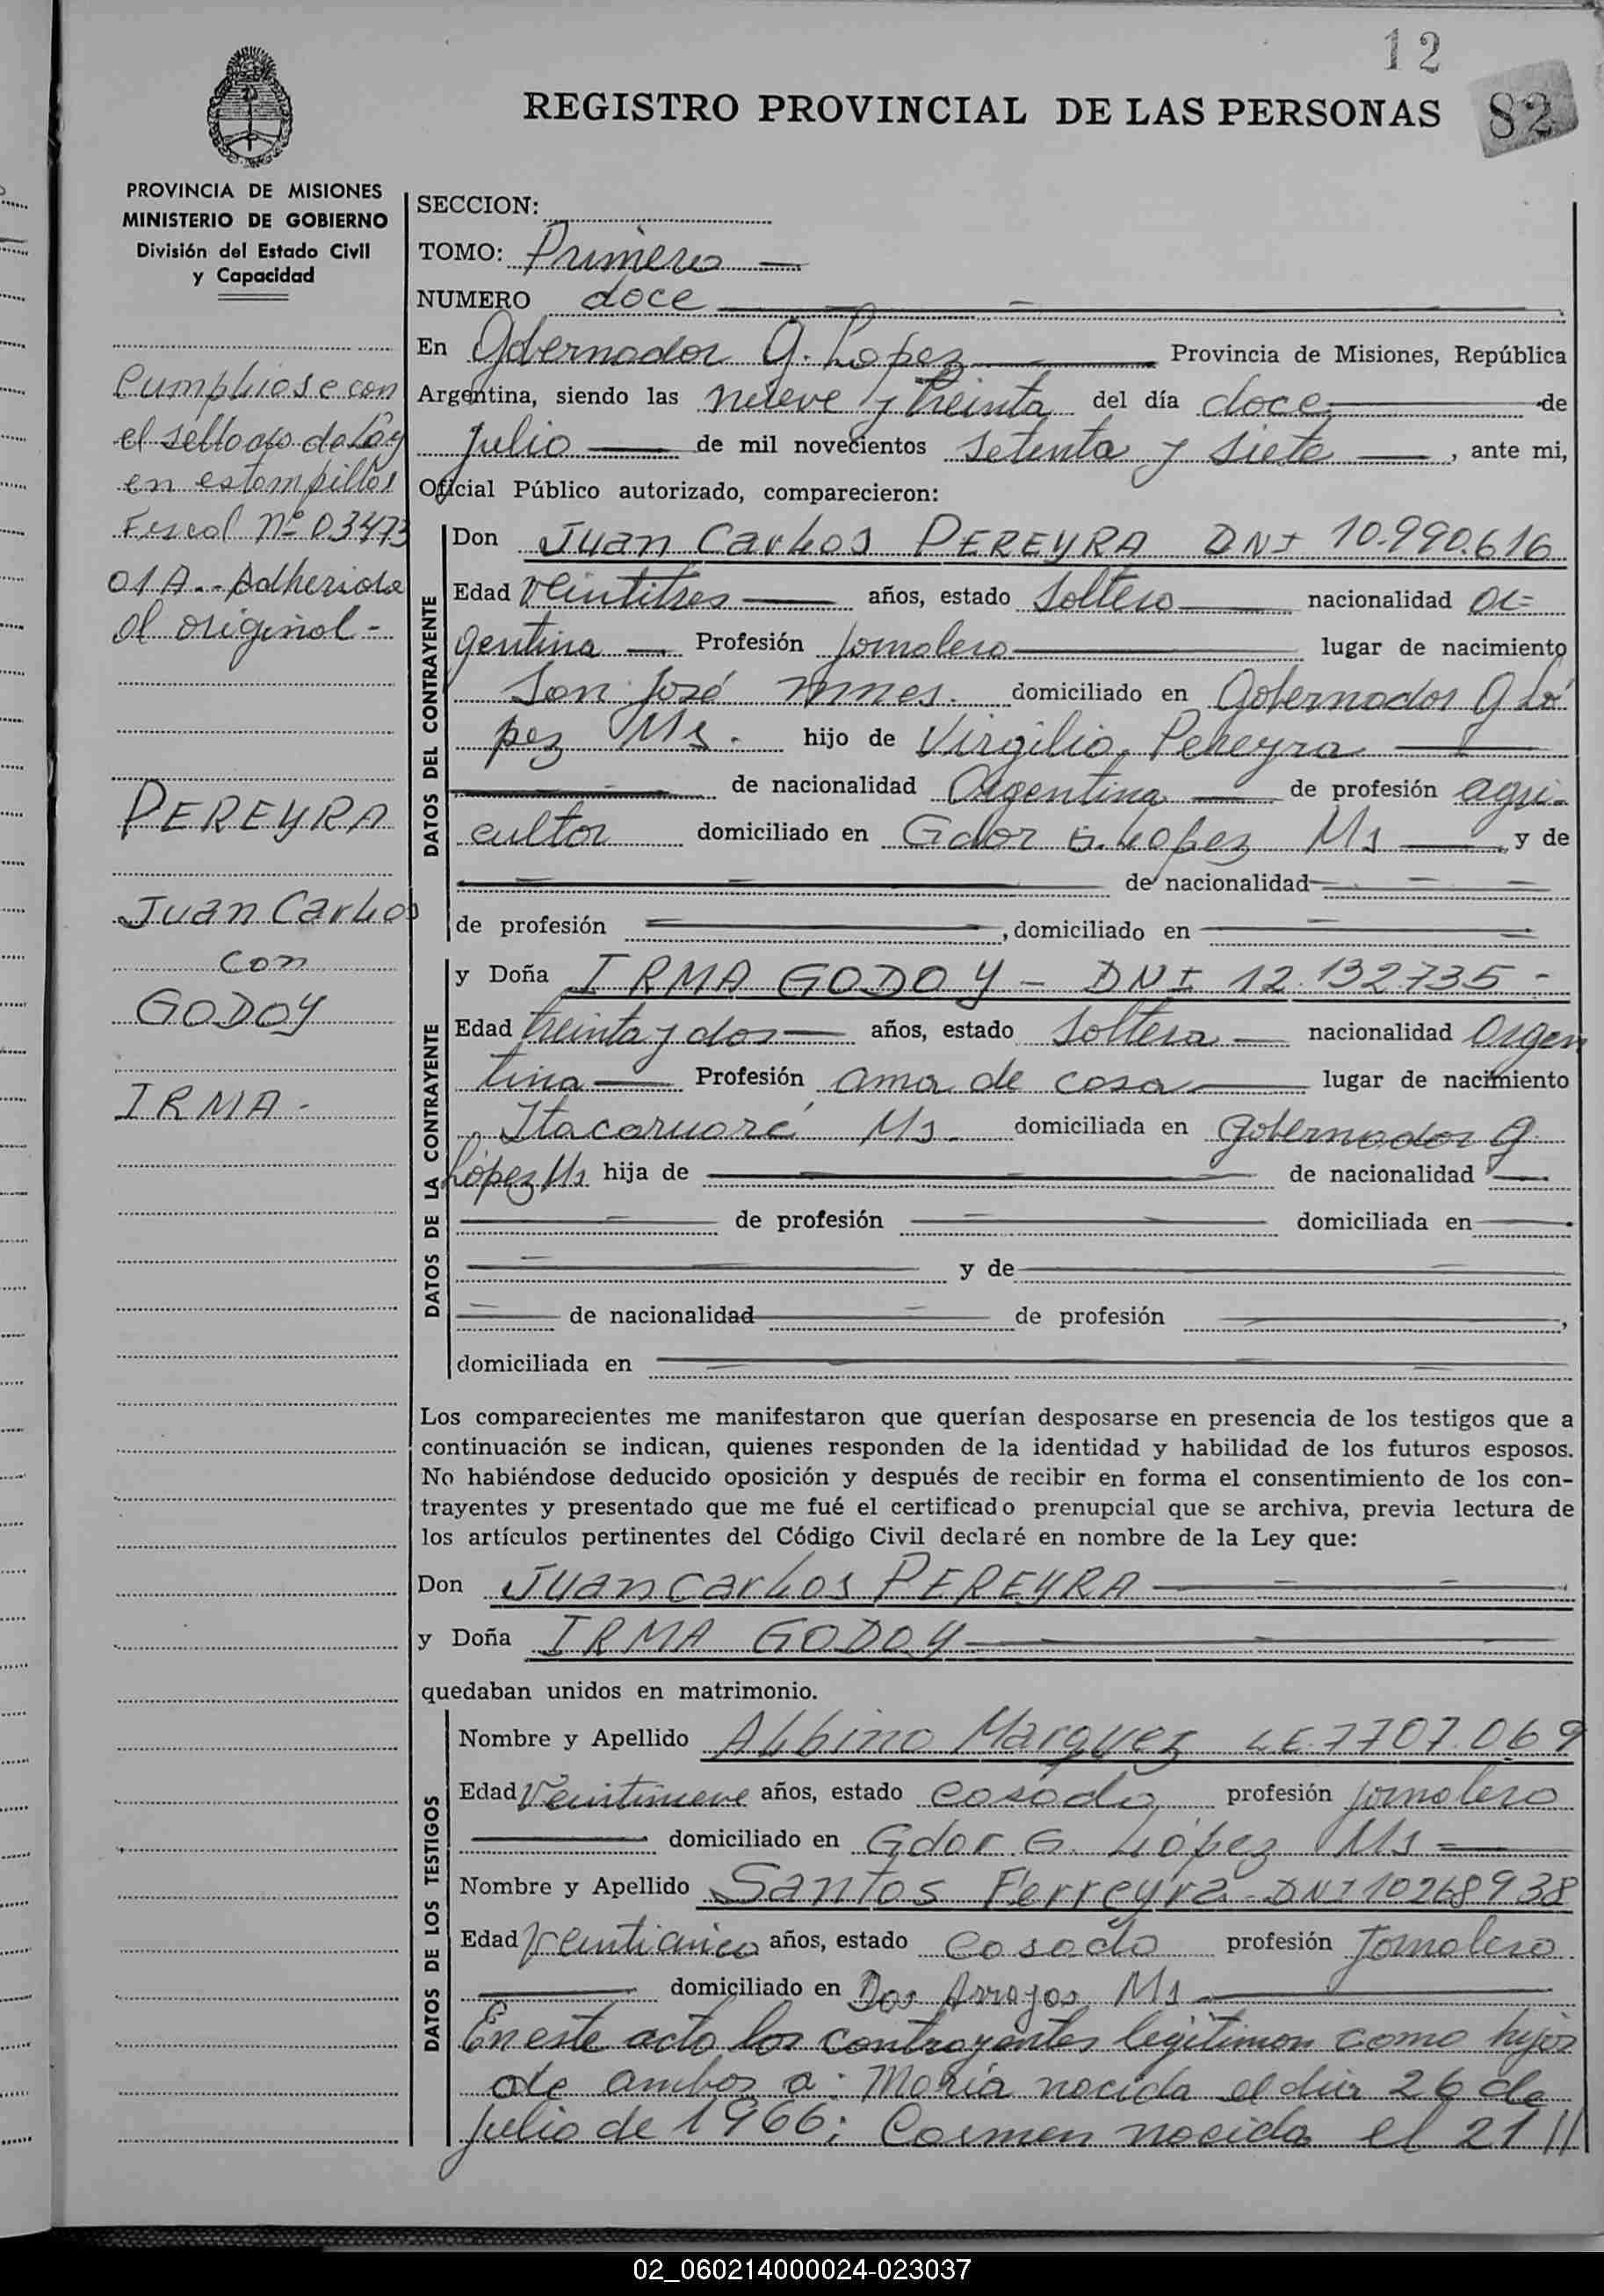 12
REGISTRO PROVINCIAL DE LAS PERSONAS
82
PROVINCIA DE MISIONES
MINISTERIO DE GOBIERNO
División del Estado Civil
y Capacidad
Cumpliose con
el sellado de Ley
en estampillas
Fiscal Nº 03473
01A.- Adherida
al original -
PEREYRA
Juan Carlos
con
GODOY
IRMA -
SECCION:
TOMO: Primero —
NUMERO doce
En Gobernador G. Lopez Provincia de Misiones, República
Argentina, siendo las nueve y treinta del día doce de
julio de mil novecientos setenta y siete, ante mi,
Oficial Público autorizado, comparecieron:
DATOS DEL CONTRAYENTE
Don Juan Carlos PEREYRA DNI 10.990.616
Edad Veintitres años, estado soltero nacionalidad ar=
gentina Profesión jornalero lugar de nacimiento
San José mnes. domiciliado en Gobernador G Ló
pez Ms. hijo de Virgilio Pereyra
de nacionalidad Argentina de profesión agri-
cultor domiciliado en Gdor G. Lopez Ms y de
de nacionalidad
de profesión , domiciliado en
DATOS DE LA CONTRAYENTE
y Doña IRMA GODOY - DNI 12.132.735 -
Edad treinta y dos años, estado soltera nacionalidad Argen
tina Profesión ama de casa lugar de nacimiento
Itacaruaré Ms. domiciliada en Gobernador G
López Ms hija de de nacionalidad
de profesión domiciliada en
y de
de nacionalidad de profesión ,
domiciliada en
Los comparecientes me manifestaron que querían desposarse en presencia de los testigos que a
continuación se indican, quienes responden de la identidad y habilidad de los futuros esposos.
No habiéndose deducido oposición y después de recibir en forma el consentimiento de los con-
trayentes y presentado que me fué el certificado prenupcial que se archiva, previa lectura de
los artículos pertinentes del Código Civil declaré en nombre de la Ley que:
Don Juan Carlos PEREYRA
y Doña IRMA GODOY
quedaban unidos en matrimonio.
DATOS DE LOS TESTIGOS
Nombre y Apellido Albino Marquez LE.7707.069
Edad Veintinueve años, estado casado profesión jornalero
domiciliado en Gdor G. López Ms
Nombre y Apellido Santos Ferreyra - DNI 10268938
Edad veinticinco años, estado casado profesión Jornalero
domiciliado en Dos Arroyos Ms
En este acto los contrayentes legitiman como hijos
de ambos a: María nacida el dia 26 de
julio de 1966; Carmen nacida el 21 //
02_060214000024-023037